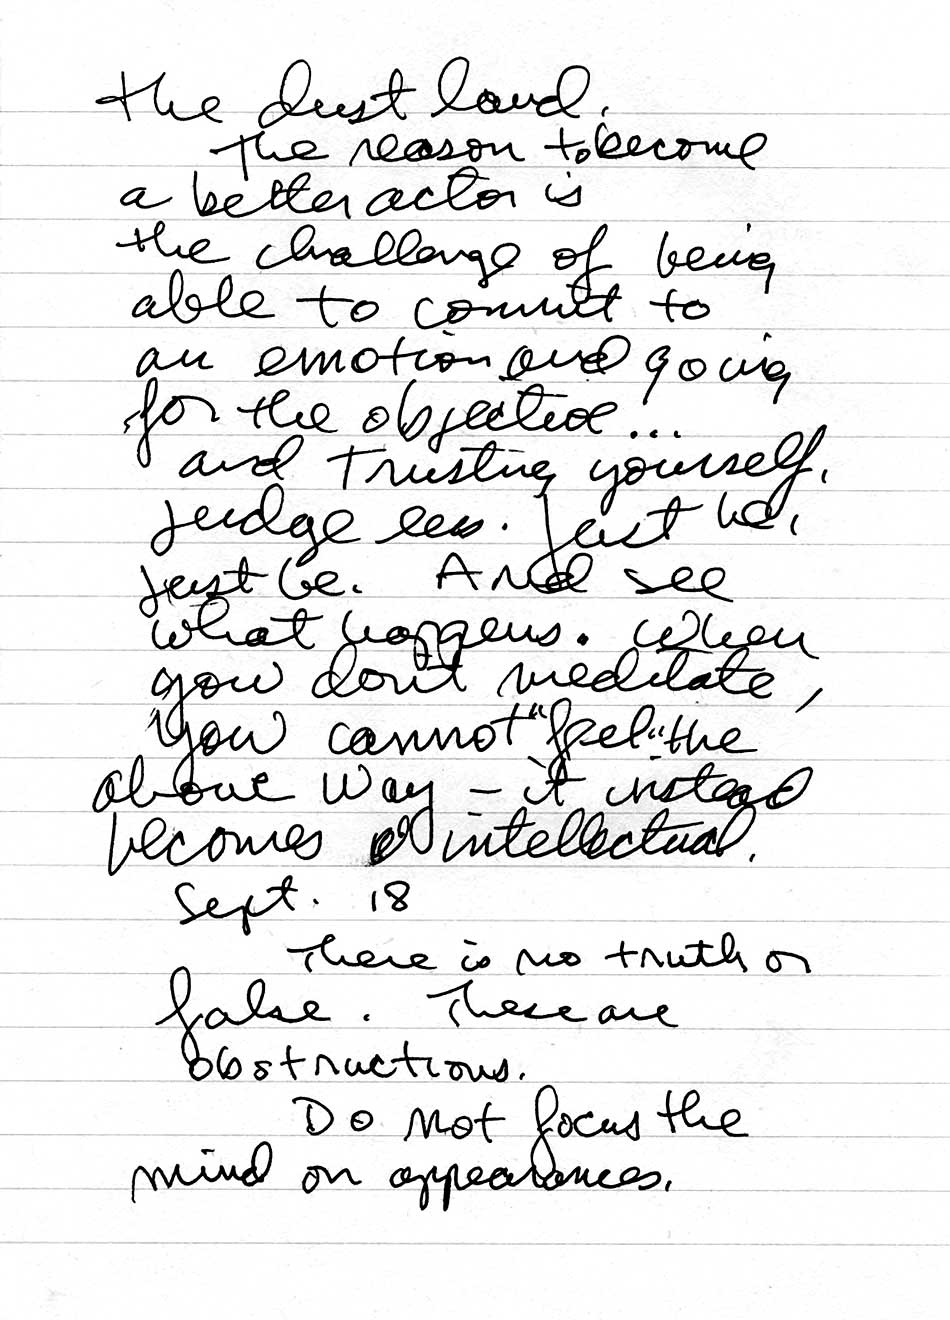 the dust land.
The reason to become
a better actor is
the challenge of being
able to commit to
an emotion and going
for the objective...
and trusting yourself.
Judge less. Just be,
just be. And see
what happens. When
you don't meditate,
you cannot "feel" the
above way - it instead
becomes intellectual.
Sept. 18
There is no truth or
false. These are
obstructions.
Do not focus the
mind on appearances.